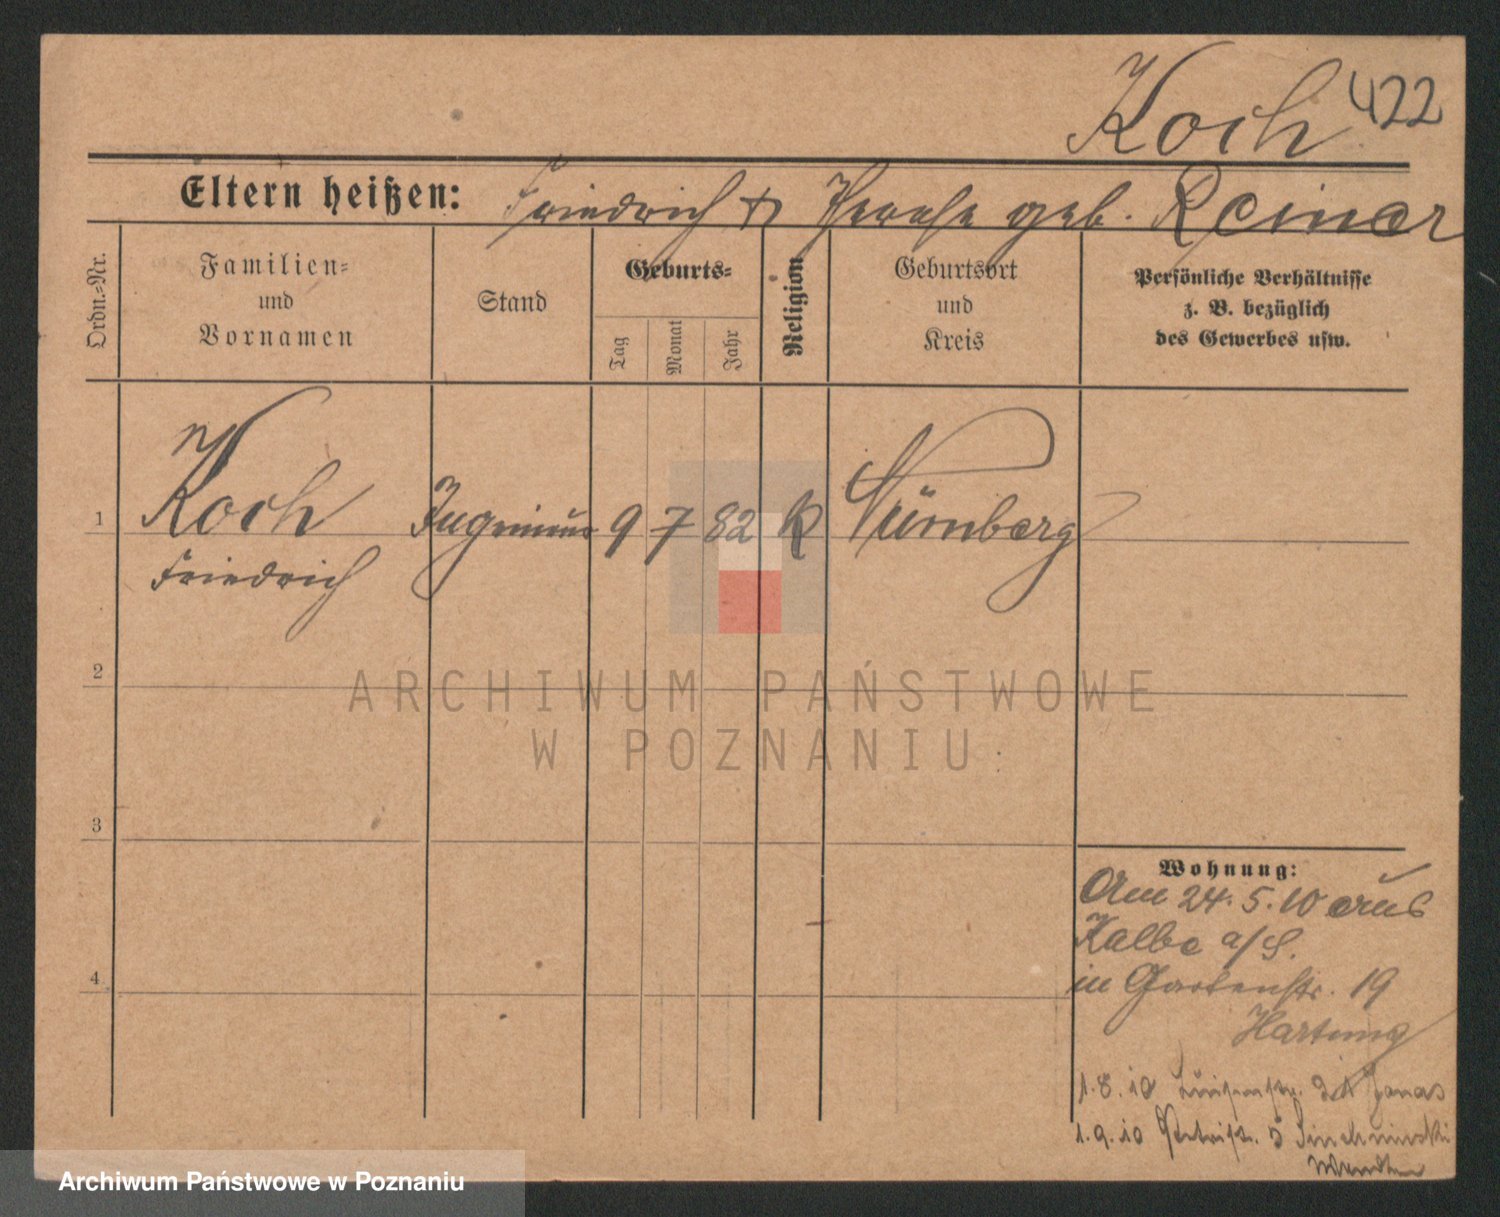 Koch 422
Eltern heißen: Friedrich & geb. Reiner
Ordn.-Nr.
Familien-
und
Vornamen
Stand
Geburts-
Tag
Monat
Jahr
Religion
Geburtsort
und
Kreis
Persönliche Verhältnisse
z. B. bezüglich
des Gewerbes usw.
1 Koch Ingenieur 9 7 82 K Nürnberg
Friedrich
2
3
4
Wohnung:
Am 24. 5. 10 aus
Kalbe a/S.
in Gartenstr. 19
Hartung
1. 8. 10 Luisenstr.
1. 9. 10
ARCHIWUM PAŃSTWOWE
W POZNANIU
Archiwum Państwowe w Poznaniu